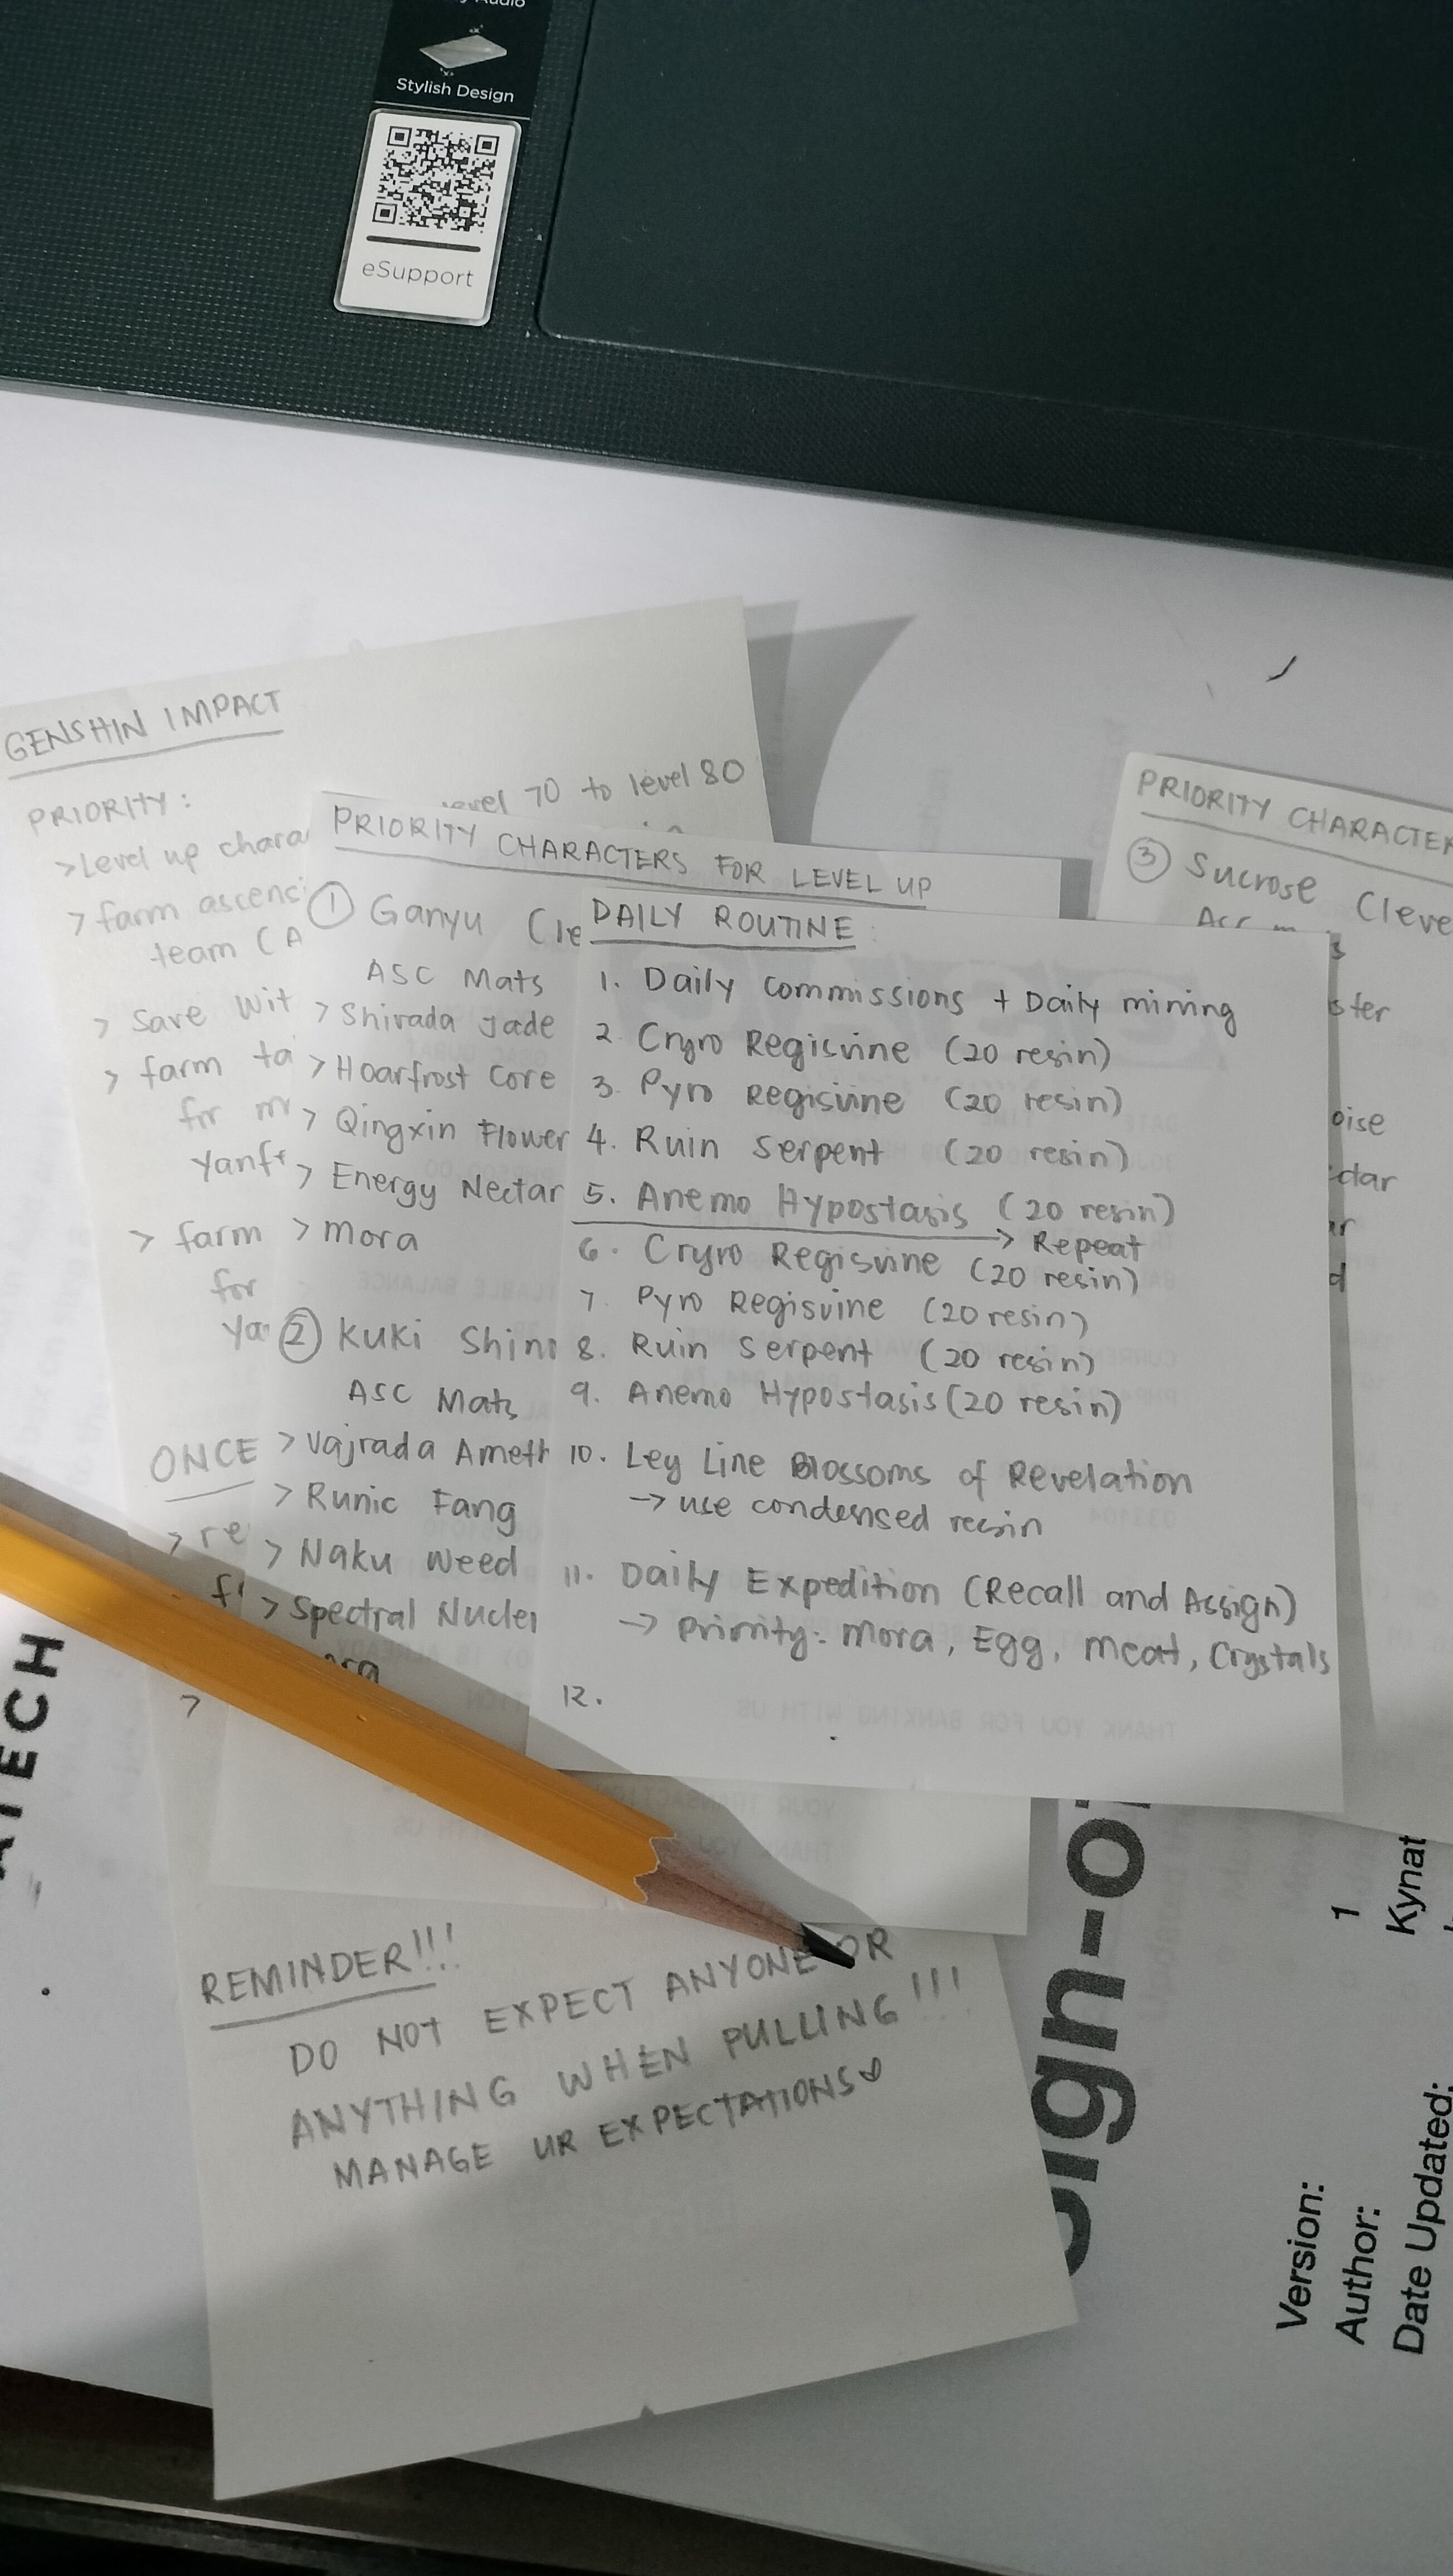 Audio
Stylish Design
eSupport
GENSHIN IMPACT
PRIORITY:
>Level up chara
level 70 to level 80
> farm ascensi
team (A
> Save Wit
> farm ta
for
Yanf
> farm
for
Ya
ONCE
> re
>
REMINDER!!!
DO NOT EXPECT ANYONE OR
ANYTHING WHEN PULLING!!!
MANAGE UR EXPECTATIONS
PRIORITY CHARACTERS FOR LEVEL UP
① Ganyu (le
ASC Mats
> Shivada Jade
> Hoarfrost Core
> Qingxin Flower
> Energy Nectar
> Mora
② Kuki Shin
ASC Mats
> Vajrada Ameth
> Runic Fang
> Naku Weed
> Spectral Nuclei
ora
DAILY ROUTINE:
1. Daily Commissions + Daily mining
2. Cryro Regisvine (20 resin)
3. Pyro Regisvine (20 resin)
4. Ruin Serpent (20 resin)
5. Anemo Hypostasis (20 resin)
> Repeat
6. Cryro Regisvine (20 resin)
7. Pyro Regisvine (20 resin)
8. Ruin Serpent (20 resin)
9. Anemo Hypostasis (20 resin)
10. Ley Line Blossoms of Revelation
→ use condensed resin
11. Daily Expedition (Recall and Assign)
→ Priority: Mora, Egg, Meat, Crystals
12.
PRIORITY CHARACTER
③ Sucrose (leve
s
ster
oise
ctar
ar
d
ATECH
ign-o
Version:
1
Author:
Kynat
Date Updated: